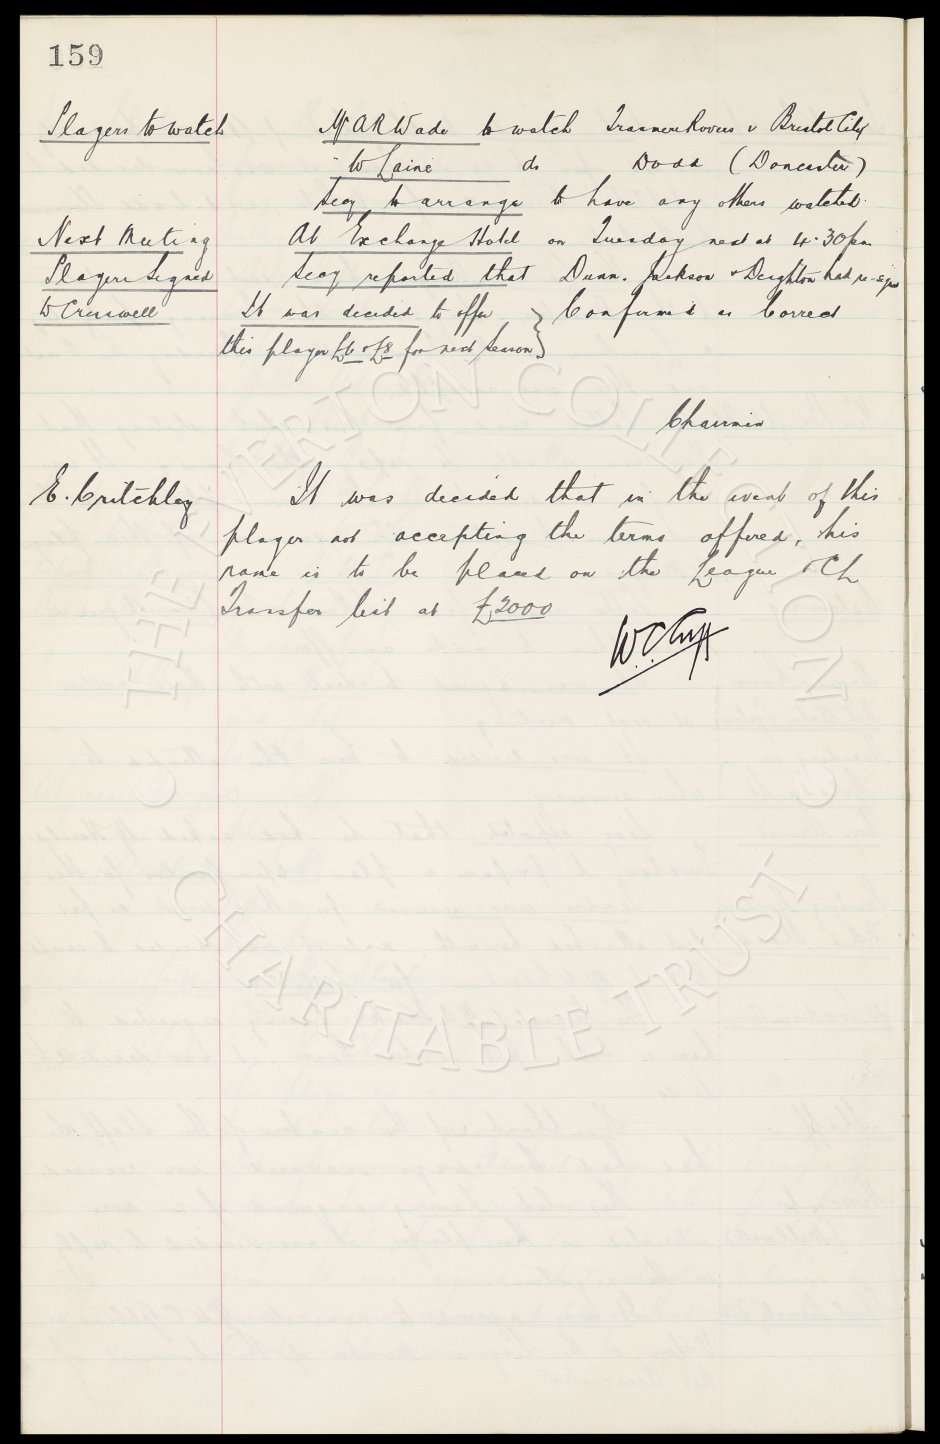 159
Players to watch Mr A R Wade to watch Tranmere Rovers v Bristol City
" W Laine do Dodd (Doncaster)
Secy to arrange to have any others watched.
Next Meeting At Exchange Hotel on Tuesday next at 4.30pm
Players Signed Secy reported that Dunn. Jackson & Deighton had re-signed
W Cresswell It was decided to offer } Confirmed as Correct
this player £6 & £8 for next Season }
Chairman
E. Critchley It was decided that in the event of this
player not accepting the terms offered, his
name is to be placed on the League & C L
Transfer list at £2000
W.C. Cuff
THE EVERTON COLLECTION
CHARITABLE TRUST